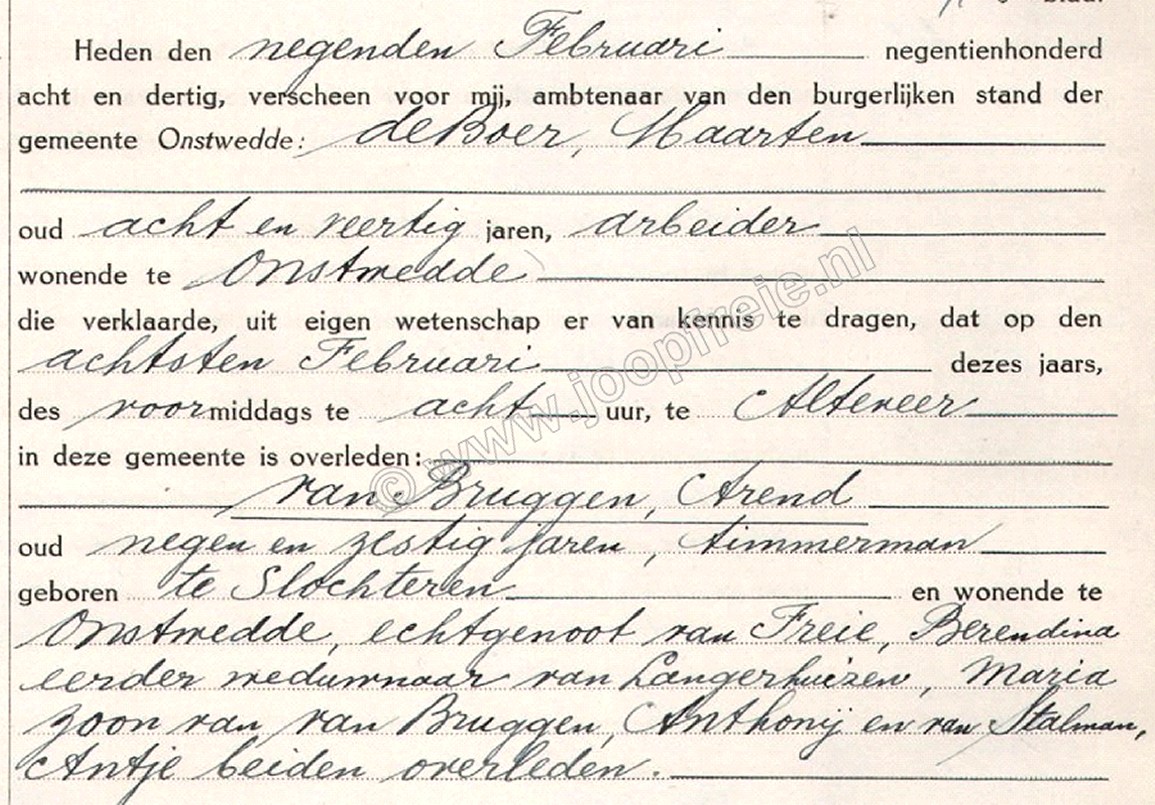 Heden den negenden Februari negentienhonderd
acht en dertig, verscheen voor mij, ambtenaar van den burgerlijken stand der
gemeente Onstwedde: de Boer, Maarten
oud acht en veertig jaren, arbeider
wonende te Onstwedde
die verklaarde, uit eigen wetenschap er van kennis te dragen, dat op den
achtsten Februari dezes jaars,
des voormiddags te acht uur, te Alteveer
in deze gemeente is overleden:
van Bruggen, Arend
oud negen en zestig jaren, timmerman
geboren te Slochteren en wonende te
Onstwedde, echtgenoot van Freie, Berendina
eerder weduwnaar van Langerhuizen, Maria
zoon van van Bruggen, Anthonij en van Stalman,
Antje beiden overleden.
© www.joopfreie.nl